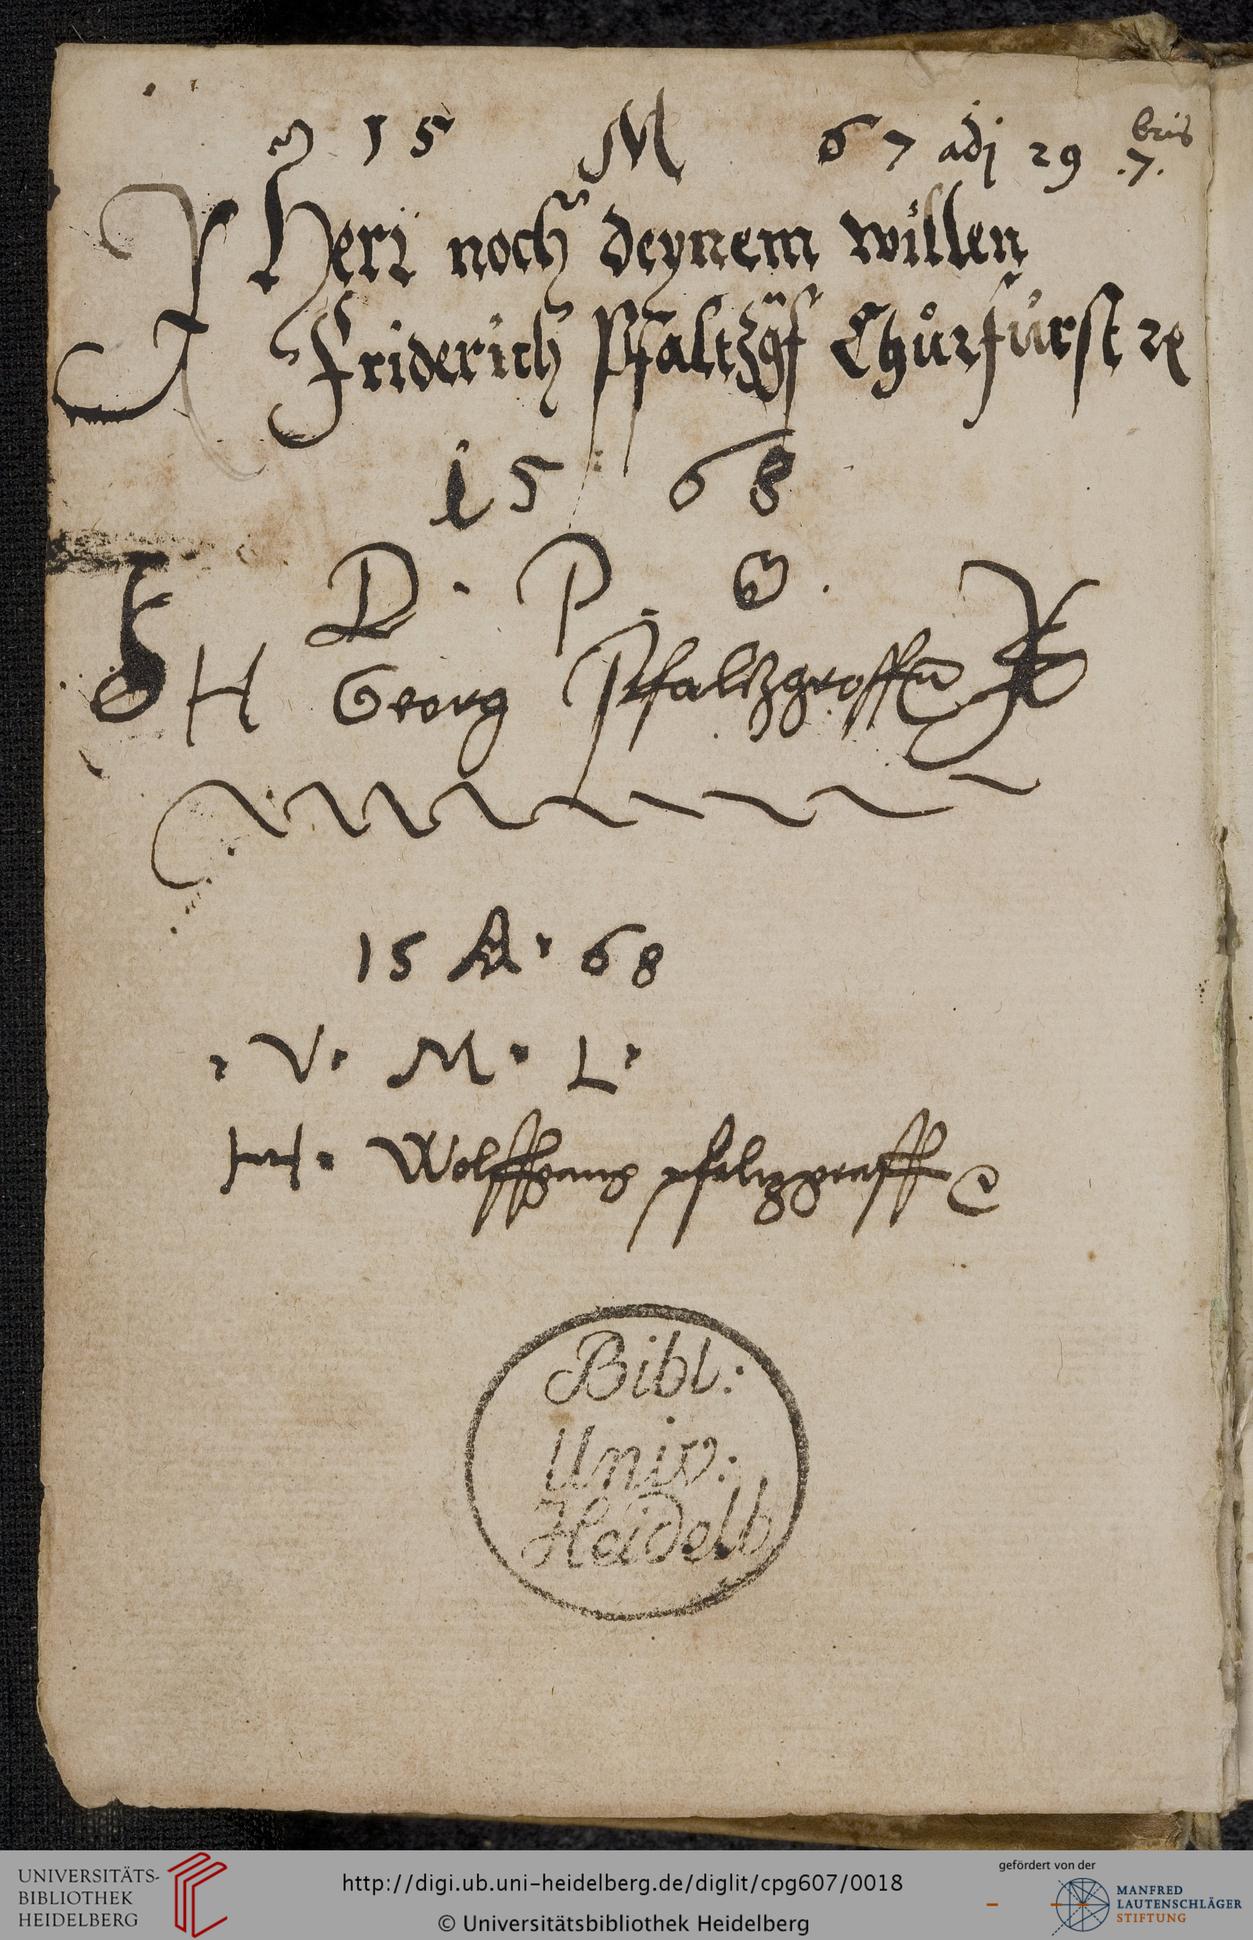 15 M 67 adj 29 .7.bris
Herr noch deynem willen
Friderich Pfaltzgf Chůrfürst
15 68
D. P. G.
H Georg Pfaltzgraff
15 A 68
V. M. L.
H. Wolffgang pfaltzgraff
Bibl:
Univ:
Heidelb
UNIVERSITÄTS-
BIBLIOTHEK
HEIDELBERG
http://digi.ub.uni-heidelberg.de/diglit/cpg607/0018
© Universitätsbibliothek Heidelberg
gefördert von der
MANFRED
LAUTENSCHLÄGER
STIFTUNG